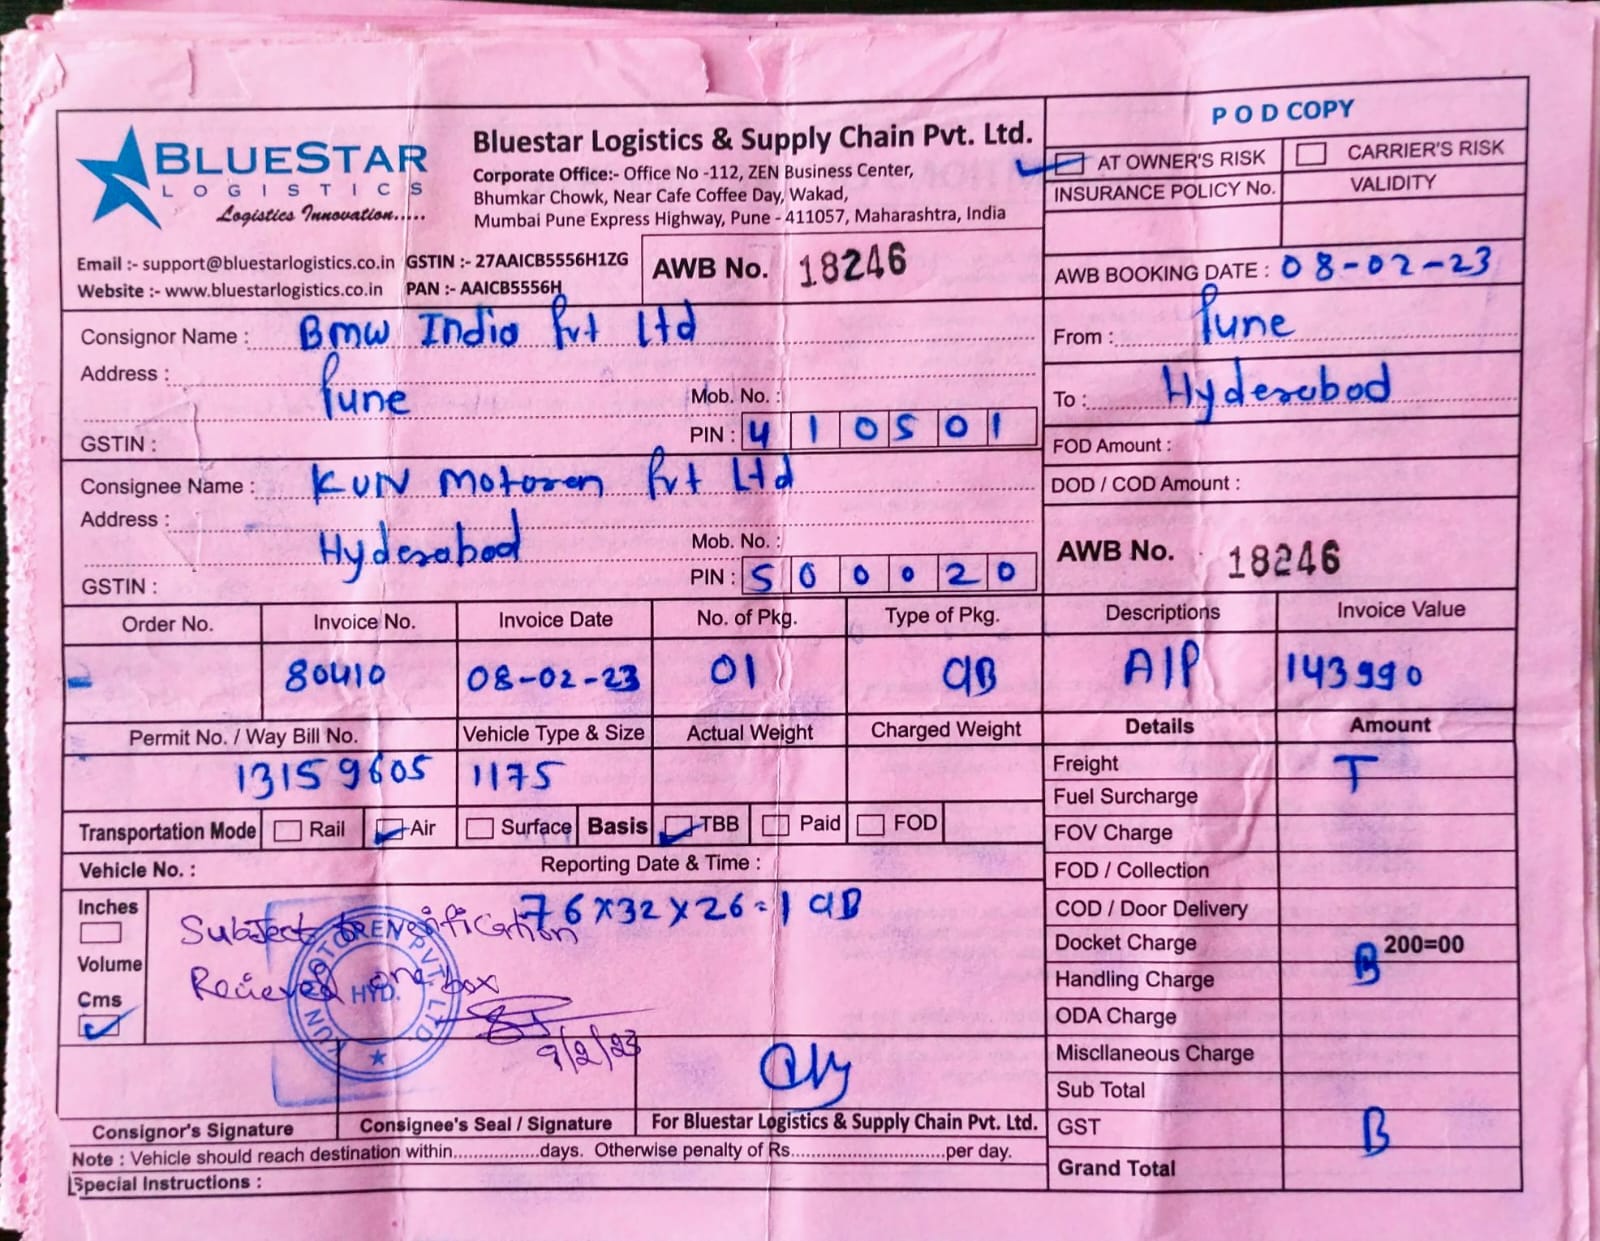 POD COPY
BLUESTAR
LOGISTICS
Logistics Innovation.....
Bluestar Logistics & Supply Chain Pvt. Ltd.
Corporate Office:- Office No -112, ZEN Business Center,
Bhumkar Chowk, Near Cafe Coffee Day, Wakad,
Mumbai Pune Express Highway, Pune - 411057, Maharashtra, India
AT OWNER'S RISK CARRIER'S RISK
INSURANCE POLICY No. VALIDITY
Email :- support@bluestarlogistics.co.in GSTIN :- 27AAICB5556H1ZG
Website :- www.bluestarlogistics.co.in PAN :- AAICB5556H
AWB No. 18246
AWB BOOKING DATE : 08-02-23
Consignor Name : Bmw India Pvt Ltd
Address : Pune
Mob. No. :
GSTIN : PIN : 410501
From : Pune
To : Hyderabad
FOD Amount :
DOD / COD Amount :
Consignee Name : KUN Motoren Pvt Ltd
Address : Hyderabad
Mob. No. :
GSTIN : PIN : 500020
AWB No. 18246
Order No. Invoice No. Invoice Date No. of Pkg. Type of Pkg. Descriptions Invoice Value
- 80410 08-02-23 01 CB A/P 143990
Permit No. / Way Bill No. Vehicle Type & Size Actual Weight Charged Weight Details Amount
13159605 1175
Transportation Mode Rail Air Surface Basis TBB Paid FOD
Vehicle No. : Reporting Date & Time :
Inches
Volume
Cms
76x32x26=1 CB
Subject to verification
Recieved one box
9/2/23
KUN MOTOREN PVT. LTD.
HYD.
Freight T
Fuel Surcharge
FOV Charge
FOD / Collection
COD / Door Delivery
Docket Charge 200=00
B
Handling Charge
ODA Charge
Miscllaneous Charge
Sub Total
GST B
Grand Total
Consignor's Signature Consignee's Seal / Signature For Bluestar Logistics & Supply Chain Pvt. Ltd.
Note : Vehicle should reach destination within.................days. Otherwise penalty of Rs...............................per day.
Special Instructions :